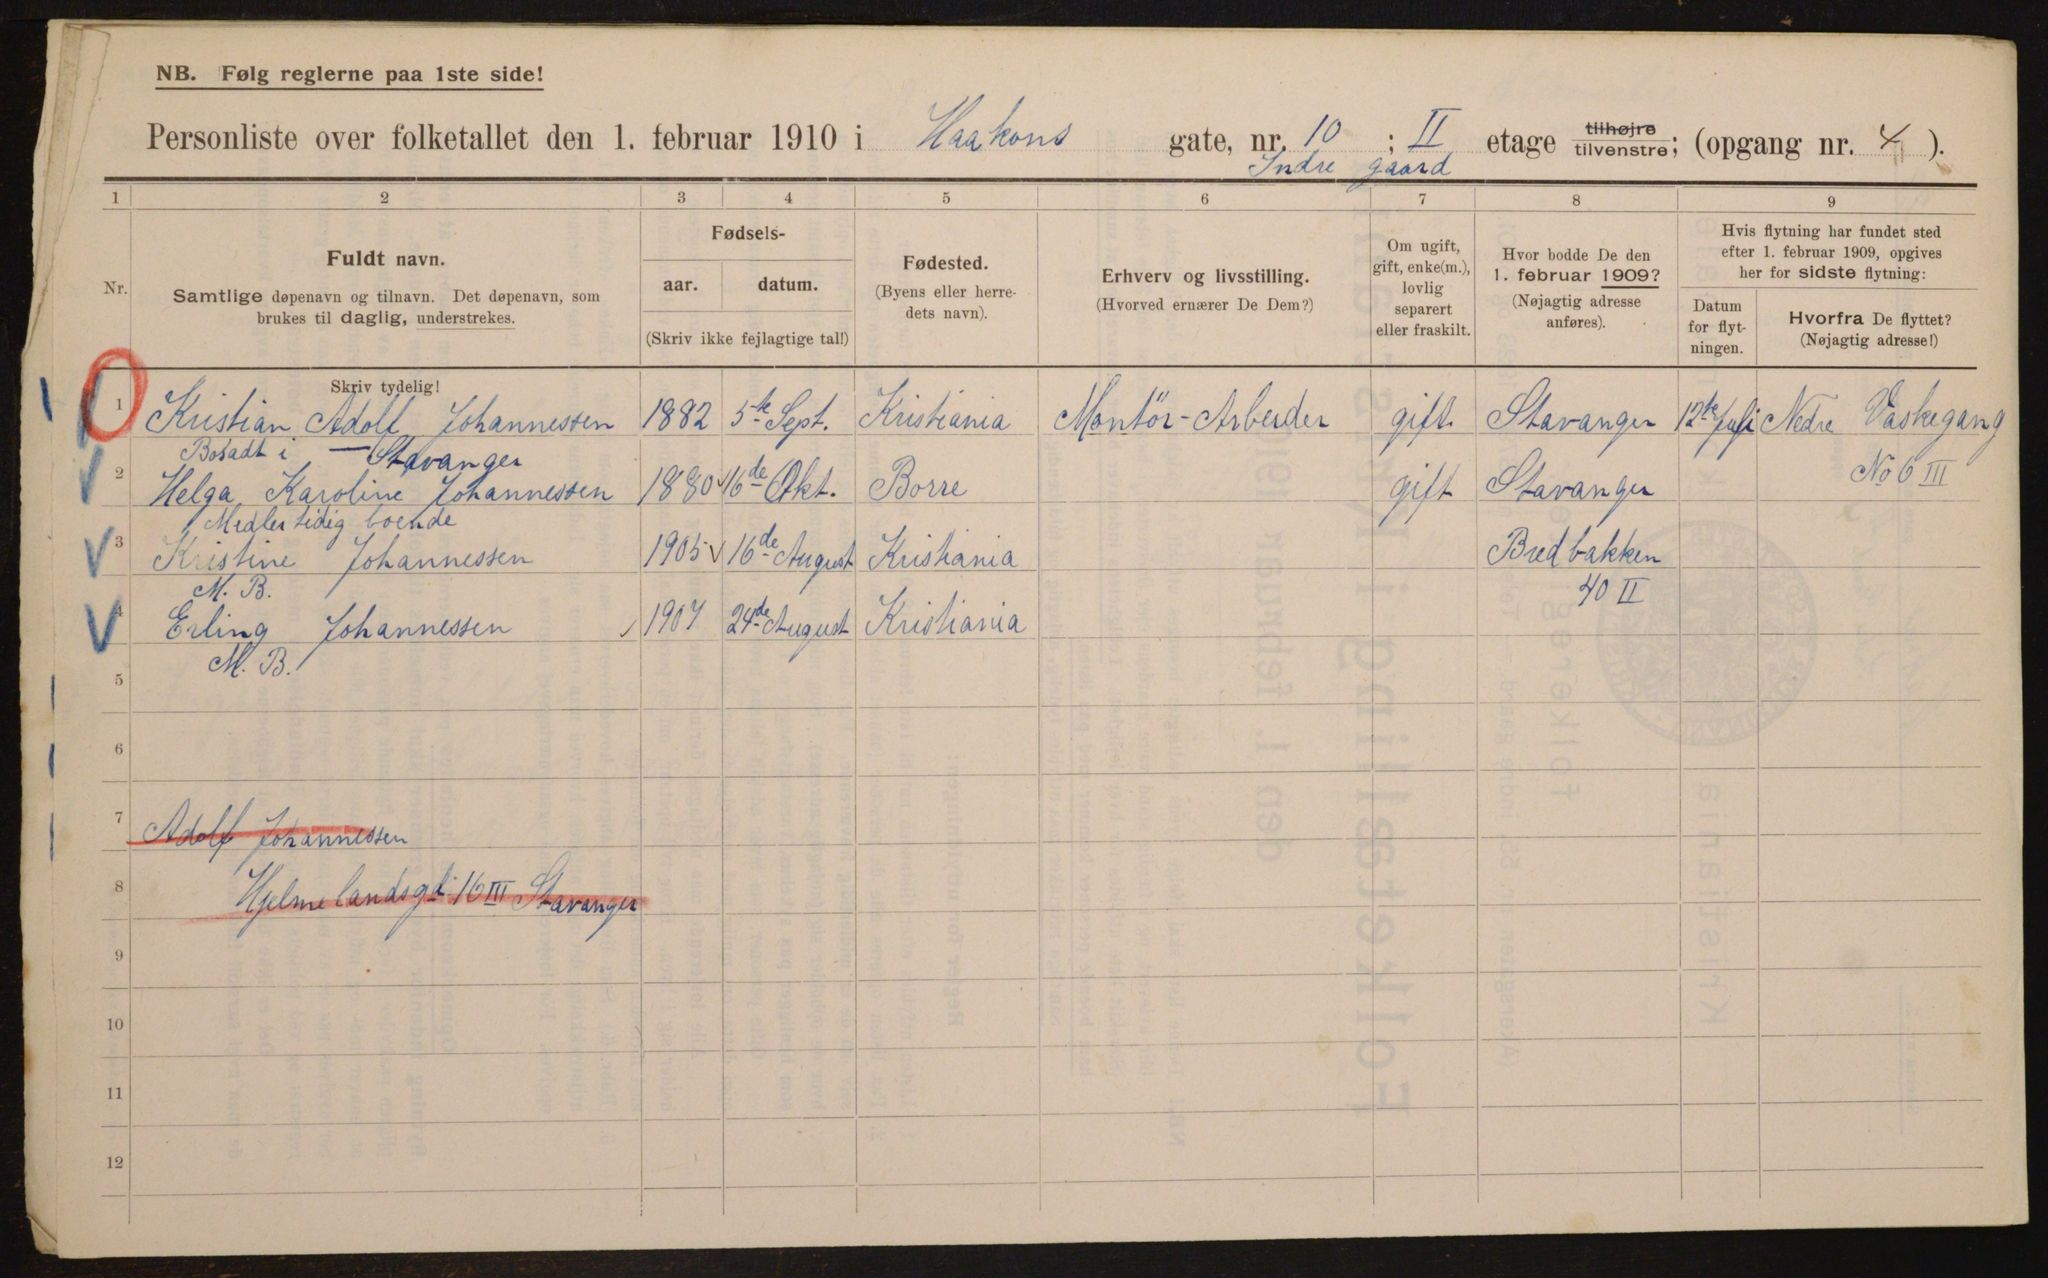 NB. Følg reglerne paa 1ste side!
Personliste over folketallet den 1. februar 1910 i Haakons gate, nr. 10 ; II etage tilhøjre tilvenstre; (opgang nr. 4 ).
Indre gaard
1 2 3 4 5 6 7 8 9
Nr.
Fuldt navn.
Samtlige døpenavn og tilnavn. Det døpenavn, som
brukes til daglig, understrekes.
Skriv tydelig!
Fødsels-
aar. datum.
(Skriv ikke fejlagtige tal!)
Fødested.
(Byens eller herre-
dets navn).
Erhverv og livsstilling.
(Hvorved ernærer De Dem?)
Om ugift,
gift, enke(m.),
lovlig
separert
eller fraskilt.
Hvor bodde De den
1. februar 1909?
(Nøjagtig adresse
anføres).
Hvis flytning har fundet sted
efter 1. februar 1909, opgives
her for sidste flytning:
Datum
for flyt-
ningen.
Hvorfra De flyttet?
(Nøjagtig adresse!)
1 Kristian Adolf Johannessen 1882 5te Sept. Kristiania Montör-Arbeider gift Stavanger 12te Juli Nedre Vaskegang
Bosadt i — Stavanger No 6 III
2 Helga Karoline Johannessen 1880 16de Okt. Borre gift Stavanger
Medlertidig boende
3 Kristine Johannessen 1905 16de August Kristiania Bredbakken
M. B. 40 II
4 Erling Johannessen 1907 24de August Kristiania
M. B.
5
6
7 Adolf Johannessen
8 Hjelmelandsgd. 16 III Stavanger
9
10
11
12